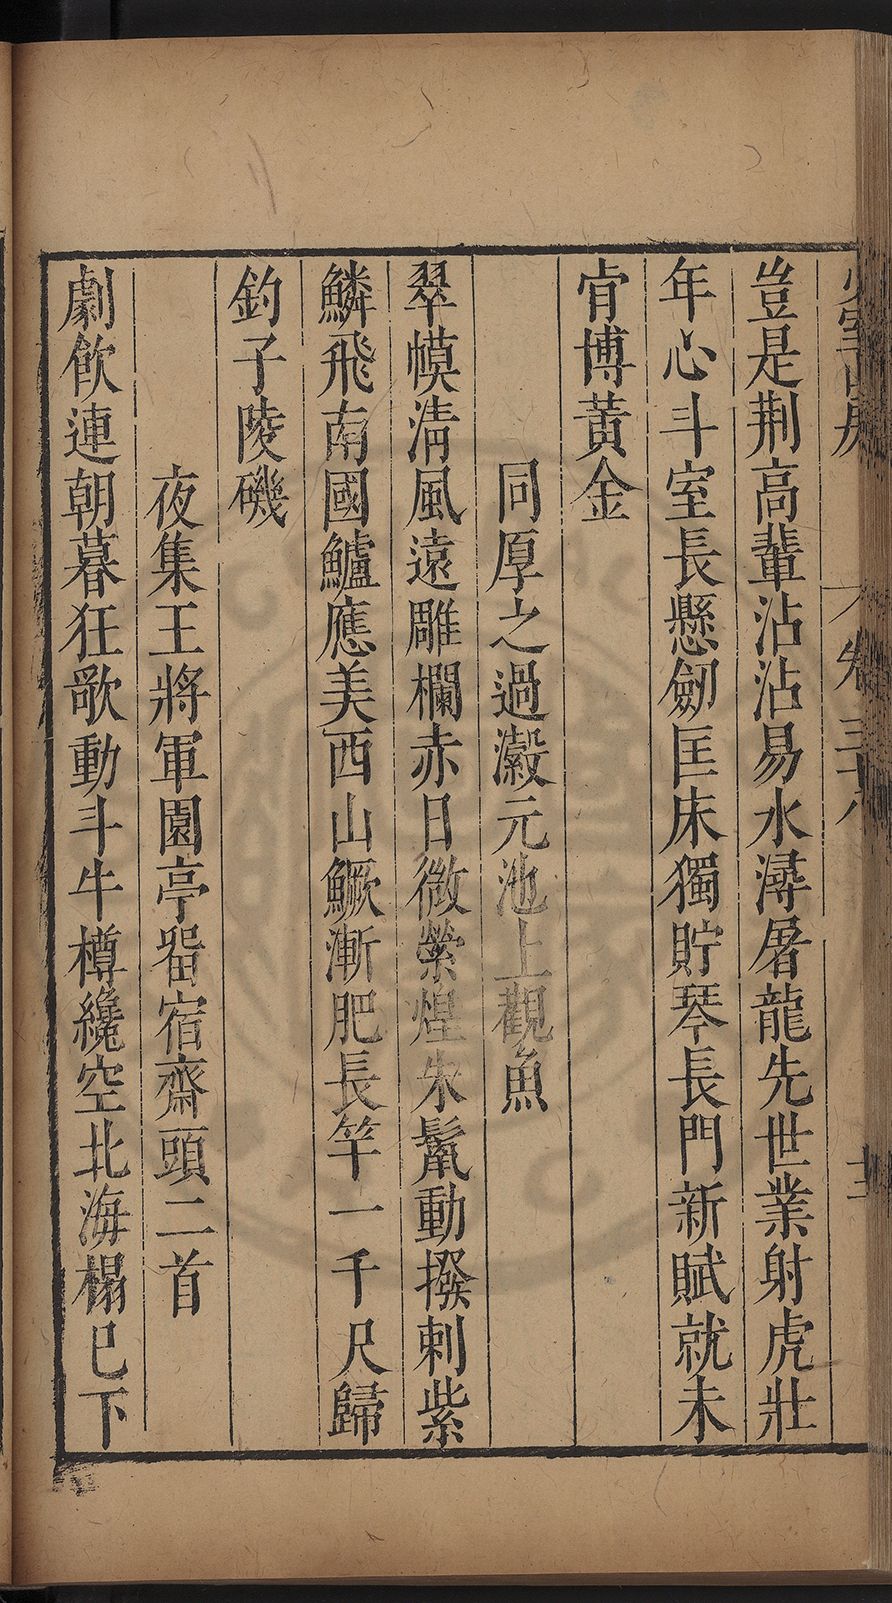 豈是荆高輩沾沾易水潯屠龍先世業射虎壯
年心斗室長懸劒匡床獨貯琴長門新賦就未
肯博黃金
同厚之過瀫元池上觀魚
翠幙淸風遠雕欄赤日微縈煌朱鬣動撥剌紫
鱗飛南國鱸應美西山鱖漸肥長竿一千尺歸
釣子陵磯
夜集王將軍園亭畱宿齋頭二首
劇飲連朝暮狂歌動斗牛樽纔空北海榻已下